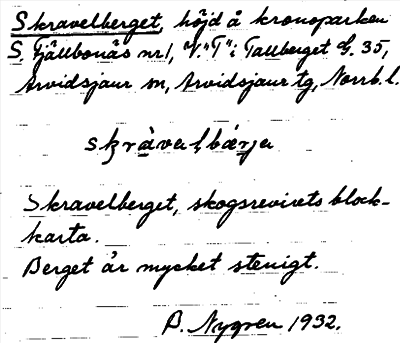 Skravelberget, höjd å kronoparken
S. Fjällbonäs nr 1, "V." "T" i Tallberget G. 35,
Arvidsjaur sn, Arvidsjaur tg, Norrb. l.
skràvalbärja
Skravelberget, skogsrevirets block-
karta.
Berget är mycket stenigt.
B. Nygren 1932.